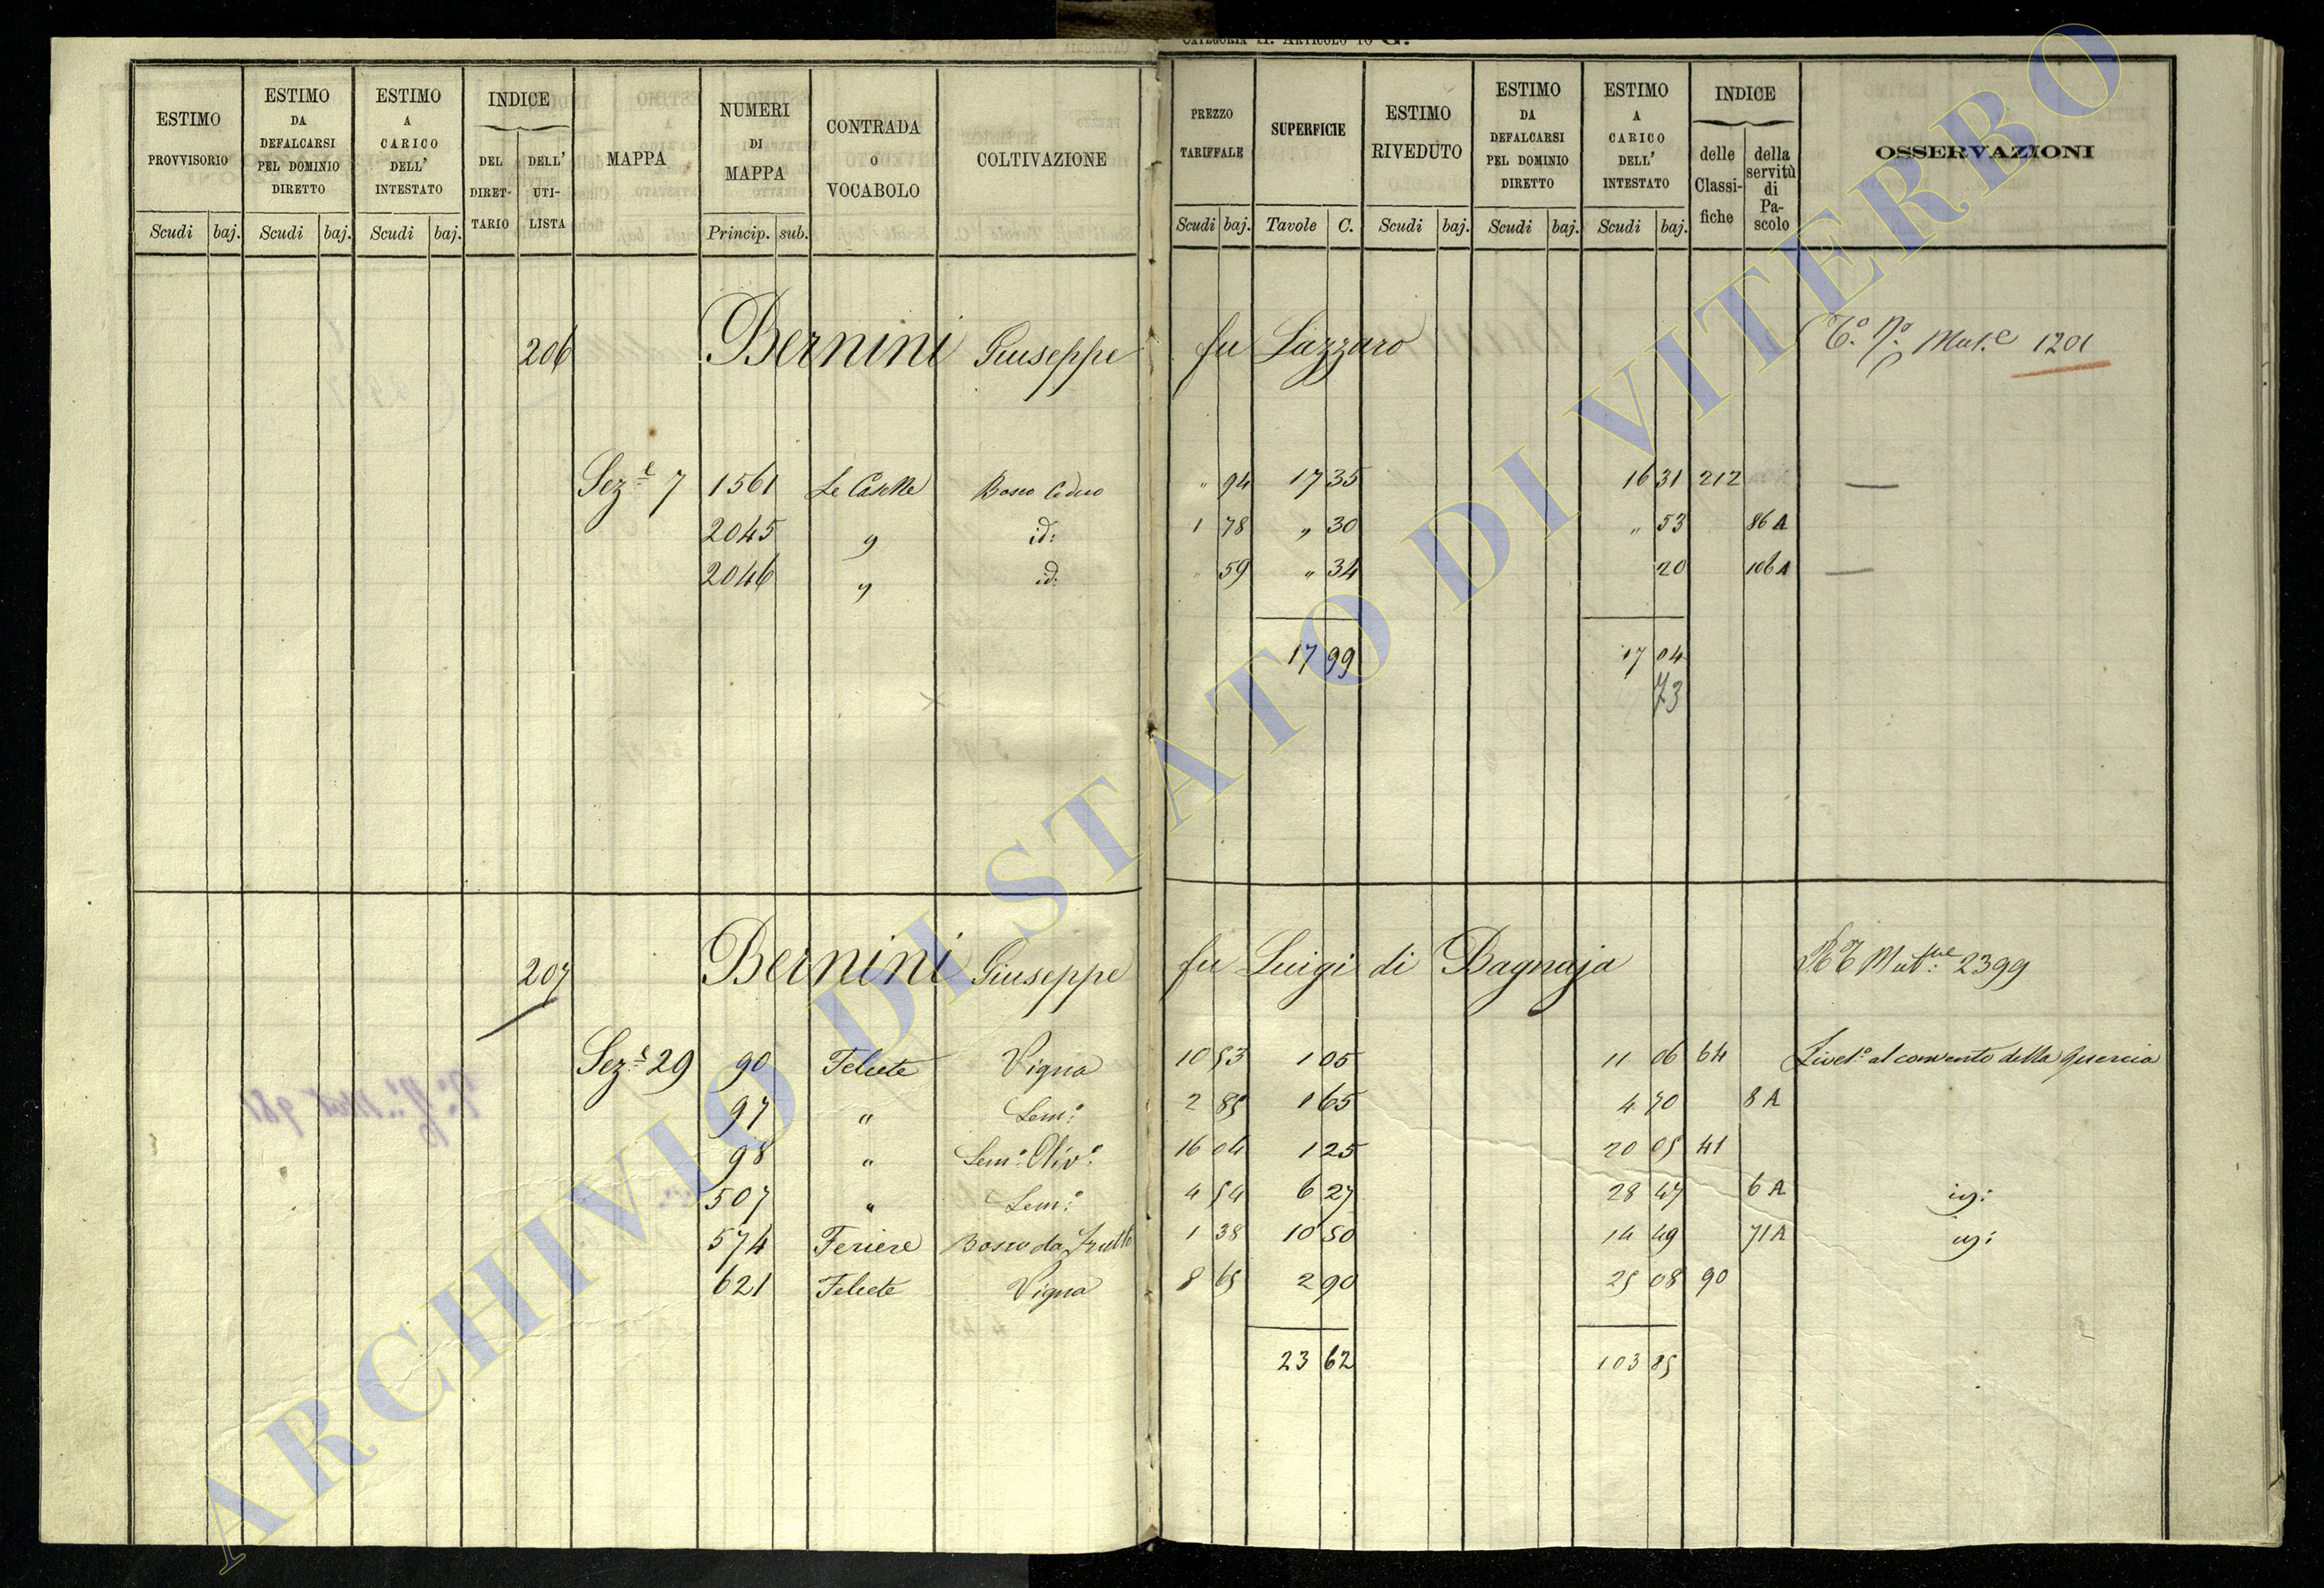 CATEGORIA II. ARTICOLO 10 G.
ESTIMO PROVVISORIO Scudi baj. ESTIMO DA DEFALCARSI PEL DOMINIO DIRETTO Scudi baj. ESTIMO A CARICO DELL' INTESTATO Scudi baj. INDICE DEL DIRETTARIO DELL' UTILISTA MAPPA NUMERI DI MAPPA Princip. sub. CONTRADA O VOCABOLO COLTIVAZIONE PREZZO TARIFFALE Scudi baj. SUPERFICIE Tavole C. ESTIMO RIVEDUTO Scudi baj. ESTIMO DA DEFALCARSI PEL DOMINIO DIRETTO Scudi baj. ESTIMO A CARICO DELL' INTESTATO Scudi baj. INDICE delle Classifiche della servitù di Pascolo OSSERVAZIONI
206 Bernini Giuseppe fu Lazzaro 1201
Sez.e 7 1561 Le Caselle Bosco Ceduo " 94 17 35 16 31 212 —
2045 " id: 1 78 " 30 " 53 86 A
2046 " id: " 59 " 34 20 106 A —
17 99 17 04
73
207 Bernini Giuseppe fu Luigi di Bagnaja 2399
Sez.e 29 90 Feliete Vigna 10 53 1 05 11 06 64 Livel.o al convento della Quercia
97 " Sem.o 2 85 1 65 4 70 8 A
98 " Sem.o Oliv.o 16 04 1 25 20 05 41
507 " Sem.o 4 54 6 27 28 47 6 A
574 Feriere Bosco da frutto 1 38 10 50 14 49 71 A
621 Feliete Vigna 8 65 2 90 25 08 90
23 62 103 85
ARCHIVIO DI STATO DI VITERBO